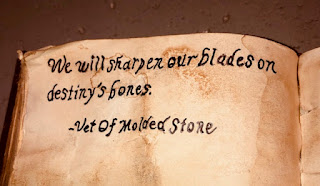 We will sharpen our blades on
destiny's bones.
-Vet Of Molded Stone